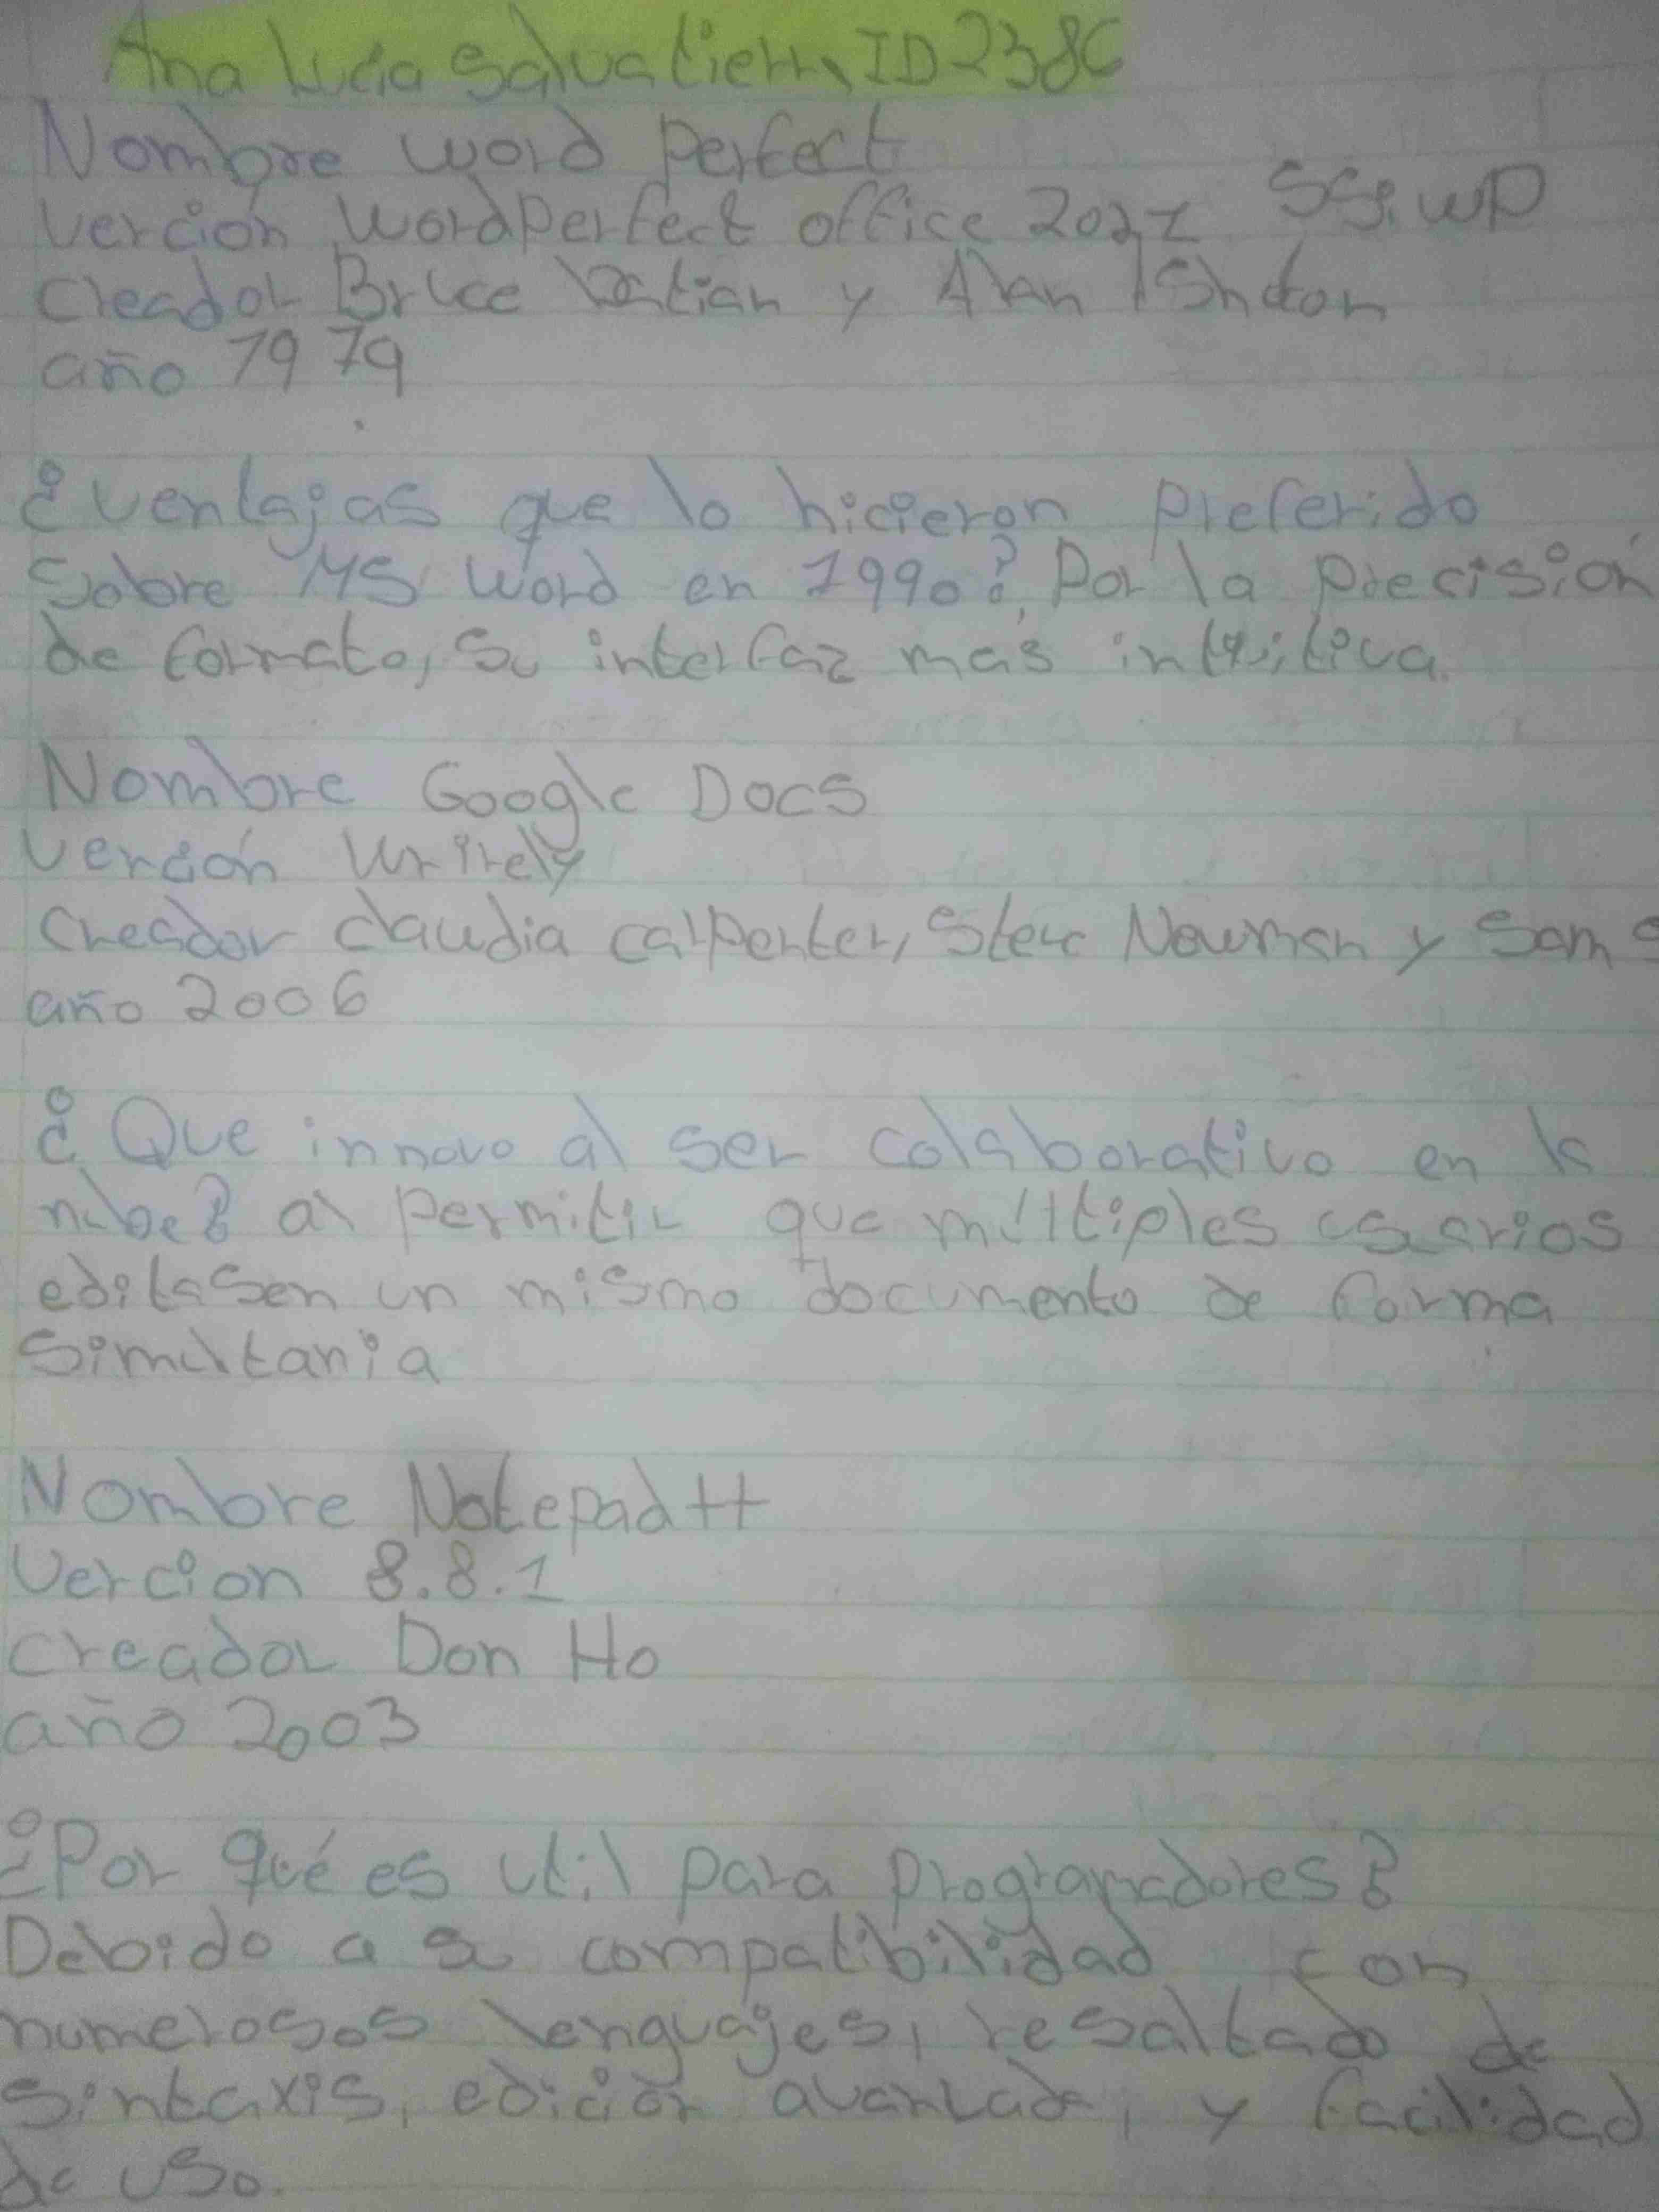 Ana Lucia Salvatierra ID238C
Nombre word perfect
verción WordPerfect office 2021 SSi WP
creador Bruce Bastian y Alan Ashton
año 1979
¿ventajas que lo hicieron preferido
sobre MS Word en 1990?, Por la precisión
de formato, su interfaz mas intuitiva.
Nombre Google Docs
verción Writely
creador claudia carpenter, Steve Newman y Sam S
año 2006
¿Que innovo al ser colaborativo en la
nube? al permitir que multtiples usuarios
editasen un mismo documento de forma
simultania
Nombre Notepad++
Vercion 8.8.1
creador Don Ho
año 2003
¿Por qué es util para programadores?
Debido a su compatibilidad con
numerosos lenguajes, resaltado de
sintaxis, edición avanzada, y facilidad
de uso.